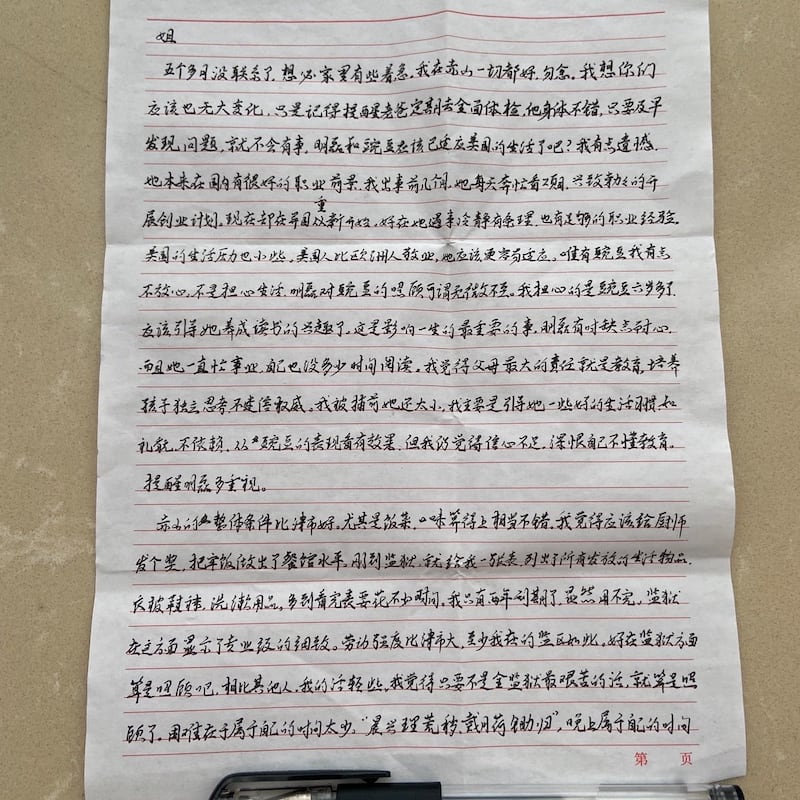 姐
五个多月没联系了,想必家里有些着急,我在赤山一切都好,勿念。我想你们
应该也无大变化,只是记得提醒老爸定期去全面体检,他身体不错,只要及早
发现问题,就不会有事,明磊和豌豆应该已适应美国的生活了吧?我有点遗憾,
她本来在国内有很好的职业前景,我出事前几個,她每天奔忙看项目,兴致勃勃的开
展创业计划。现在却在异国从重新开始,好在她遇事冷静有条理,也有足够的职业经验。
美国的生活压力也小些,美国人比欧洲人敬业,她应该更容易适应。唯有豌豆我有点
不放心,不是担心生活,明磊对豌豆的照顾可谓无微不至。我担心的是豌豆六岁多了,
应该引导她养成读书的兴趣了。这是影响一生的最重要的事,明磊有时缺点耐心,
而且她一直忙事业,自己也没多少时间阅读。我觉得父母最大的责任就是教育,培养
孩子独立思考不迷信权威。我被捕前她还太小,我主要是引导她一些好的生活习惯,如
礼貌,不依赖,从豌豆的表现看有效果,但我仍觉得信心不足,深恨自己不懂教育。
提醒明磊多重视。
赤山的整体条件比津市好。尤其是饭菜,口味算得上相当不错,我觉得应该给厨师
发个奖,把牢饭做出了餐馆水平。刚到监狱,就给我一张表,列出了所有发放的生活物品,
衣被鞋袜,洗漱用品,多到看完表要花不少时间。我只有两年刑期了,显然用不完。监狱
在这方面显示了专业级的细致。劳动强度比津市大,至少我在的监区如此,好在监狱方面
算是照顾吧,相比其他人,我的活轻些,我觉得只要不是全监狱最艰苦的活,就算是照
顾了。困难在于属于自己的时间太少,“晨兴理荒秽,戴月荷锄归”,晚上属于自己的时间
第 页